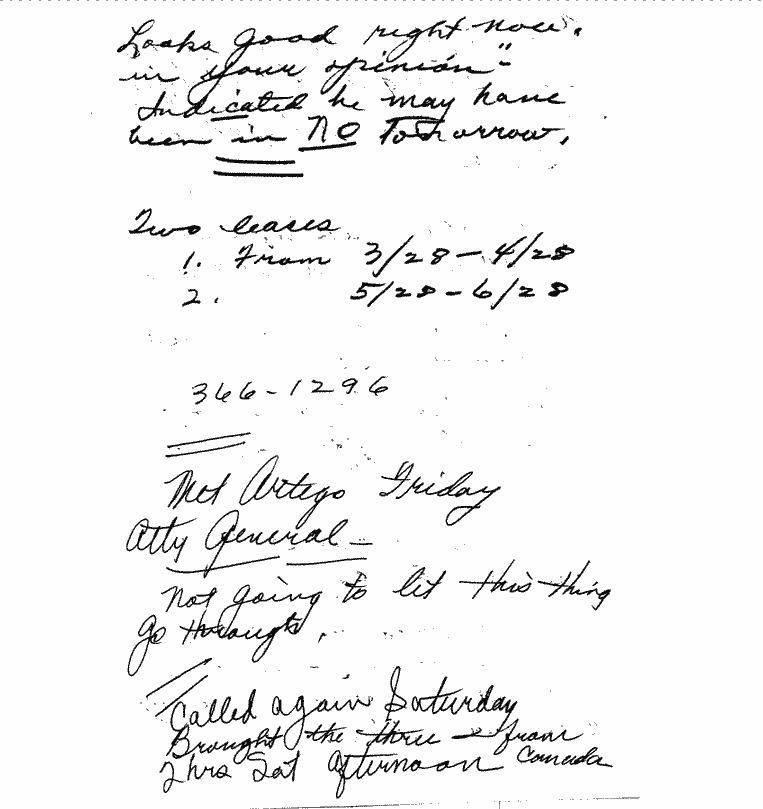 Looks good right now.
in your opinion"-
Indicated he may have
been in NO Tomorrow.
Two leases
1. From 3/28-4/28
2. 5/28-6/28
366-1296
Met Artego Friday
Atty General -
Not going to let this thing
go through.
Called again Saturday
Brought the three - from
2 hrs Sat Afternoon Canada